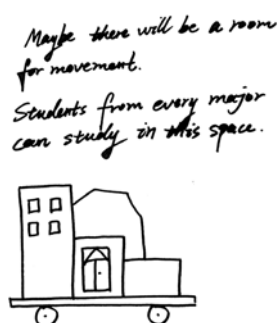 Maybe there will be a room
for movement.
Students from every major
can study in this space.